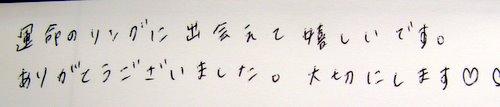 運命のリングに出会えて嬉しいです。
ありがとうございました。大切にします♡♡